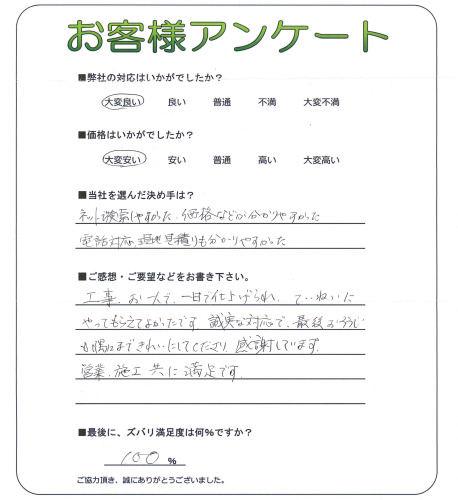 お客様アンケート
■弊社の対応はいかがでしたか？
大変良い 良い 普通 不満 大変不満
■価格はいかがでしたか？
大変安い 安い 普通 高い 大変高い
■当社を選んだ決め手は？
ネット検索しやすかった、価格などが分かりやすかった
電話対応、現地見積りも分かりやすかった
■ご感想・ご要望などをお書き下さい。
工事、お一人で、一日で仕上げられ、ていねいに
やってもらえてよかったです。誠実な対応で、最後のそうじ
も隅々まできれいにしてくださり、感謝しています。
営業、施工共に満足です。
■最後に、ズバリ満足度は何%ですか？
100 %
ご協力頂き、誠にありがとうございました。